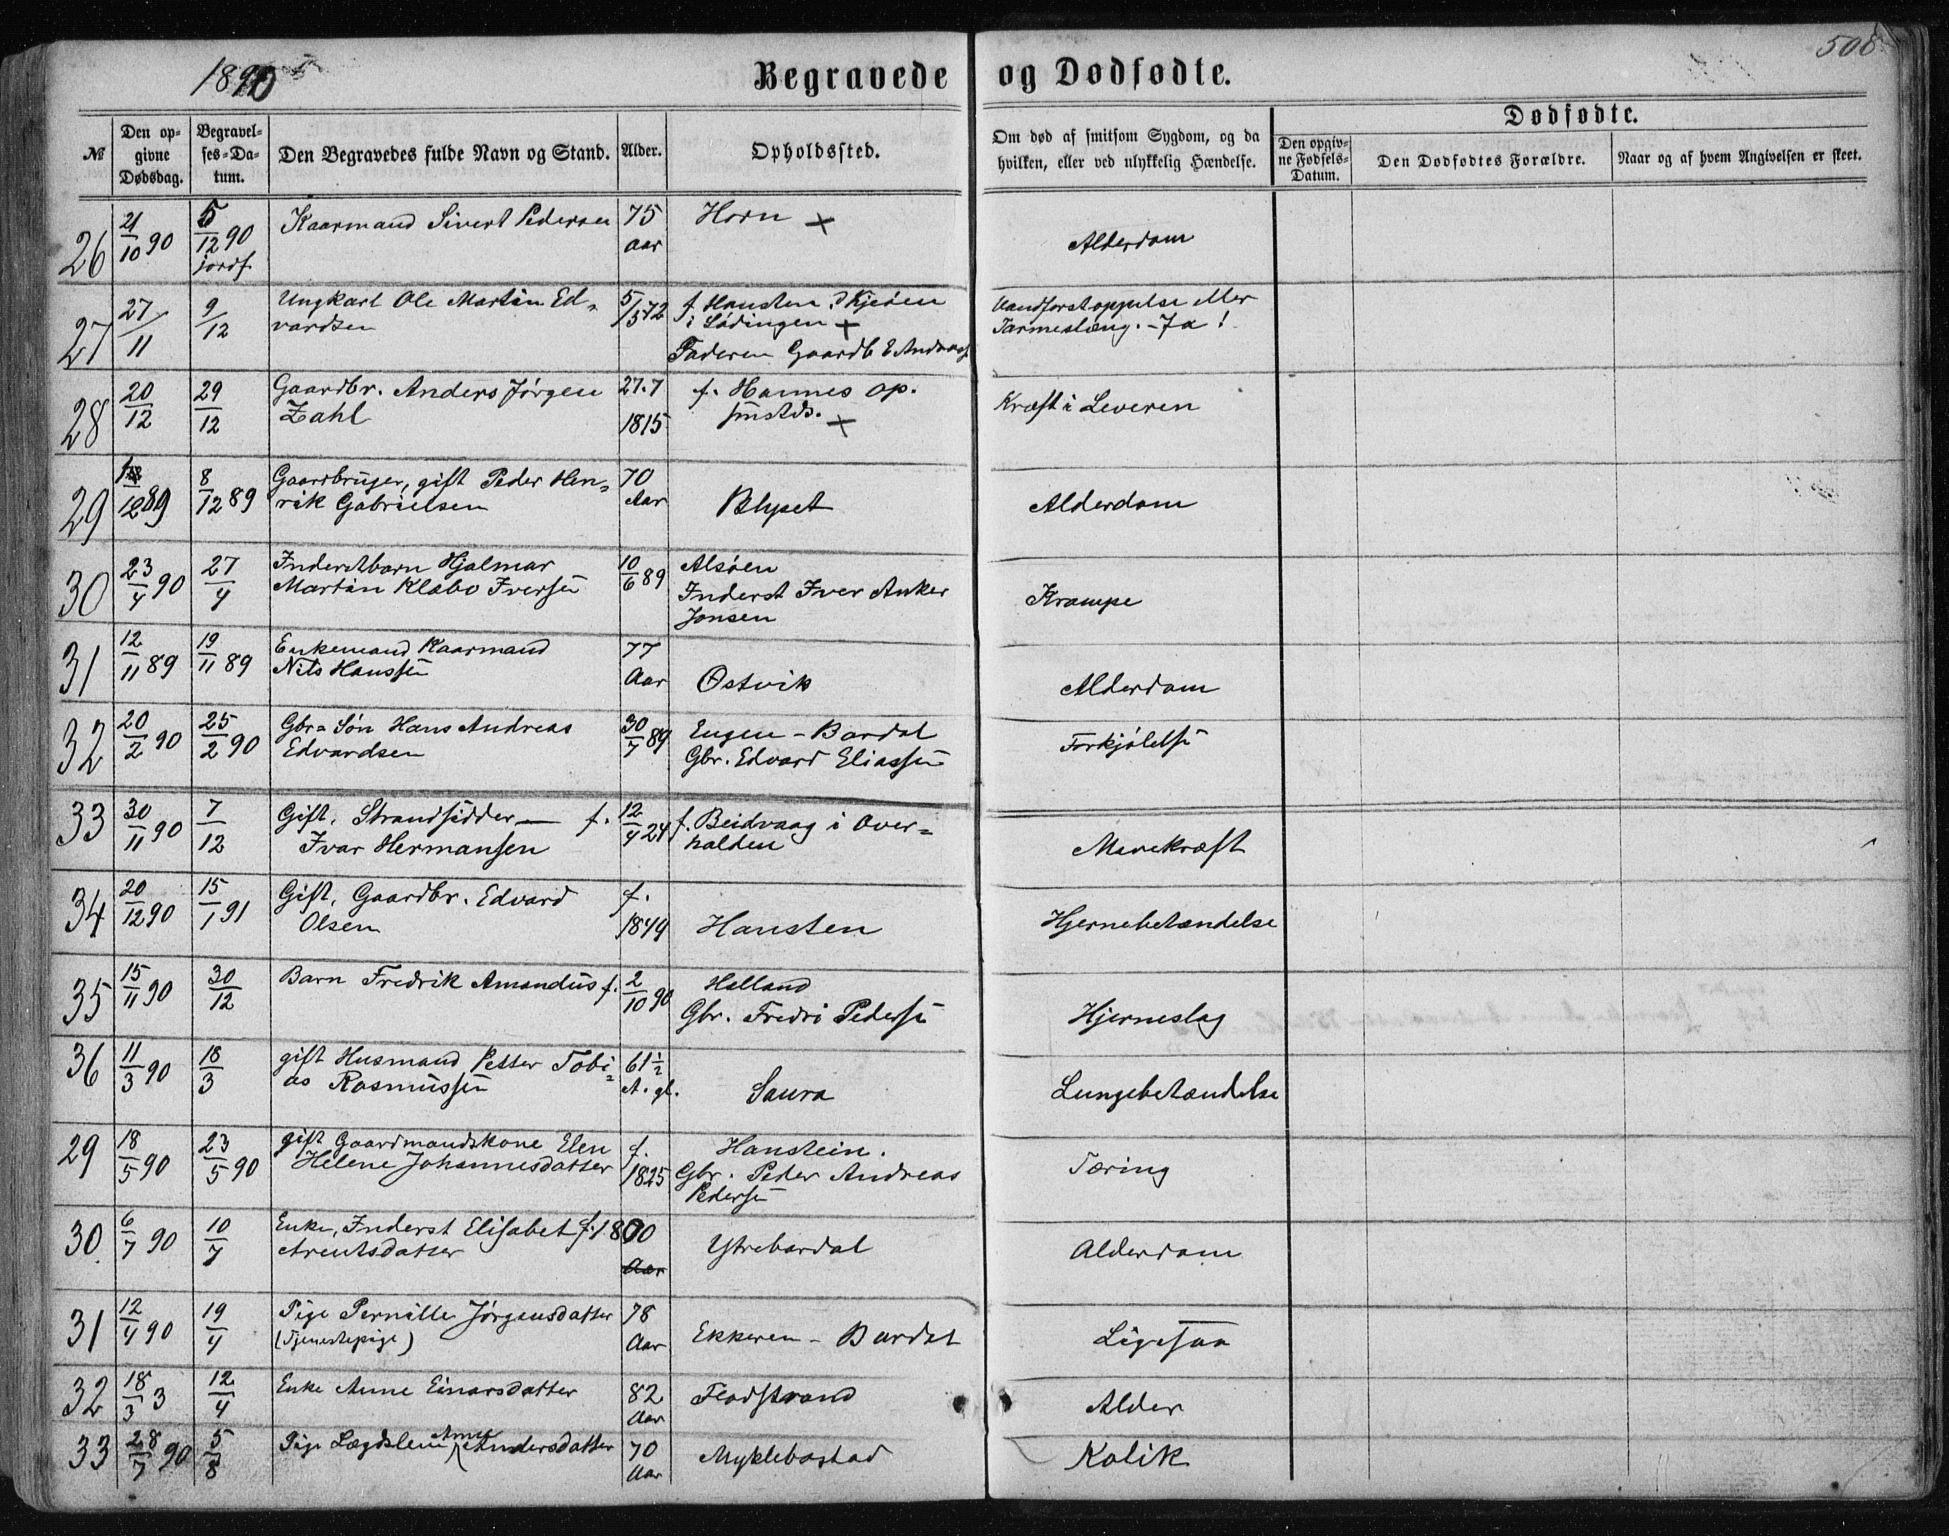 1890
Begravede og Dødfødte.
508
№
Den opgivne Dødsdag.
Begravelses-Datum.
Den Begravedes fulde Navn og Stand.
Alder.
Opholdssted.
Om død af smitsom Sygdom, og da hvilken, eller ved ulykkelig Hændelse.
Dødfødte.
Den opgivne Fødsels-Datum.
Den Dødfødtes Forældre.
Naar og af hvem Angivelsen er skeet.
26 21/10 90 5/12 90 jordf. Kaarmand Sivert Pedersen 75 Aar Horn + Alderdom
27 27/11 9/12 Ungkarl Ole Martin Ed-
vardsen 5/5 72 f. Hansten
i Lødingen +
Faderen Gaardb E Andreas
Vandforstoppelse eller
Tarmeslæng. - Ja!
28 20/12 29/12 Gaardbr. Anders Jørgen
Zahl 27.7 1815 f. Hannes op.
+ Kræft i Leveren
29 12 89 8/12 89 Gaardbruger, gift Peder Hen-
rik Gabrielsen 70 Aar Blyset Alderdom
30 23/4 90 27/4 Inderstbarn Hjalmar
Martin Klabo Iversen 10/6 89 Alsøen
Inderst Iver Anker
Jonsen Krampe
31 12/11 89 19/11 89 Enkemand Kaarmand
Nils Hanssen 77 Aar Østvik Alderdom
32 20/2 90 25/2 90 Gbr. Søn Hans Andreas
Edvardsen 30/7 89 Engen - Bardal
Gbr. Edvard Eliassen Forkjølelse
33 30/11 90 7/12 Gift, Strandsidder — f. 12/4 24 f. Beidvaag i Over-
Ivar Hermansen halden Mavekræft
34 20/12 90 15/1 91 Gift, Gaardbr. Edvard
Olsen f. 1849 Hansten Hjernebetændelse
35 15/11 90 30/12 Barn Fredrik Amandus f. 2/10 90 Halland
Gbr. Fredri Pedersen Hjerneslag
36 11/3 90 18/3 gift Husmand Petter Tobi-
as Rasmussen 61 1/2 A. gl. Saura Lungebetændelse
29 18/5 90 23/5 90 gift Gaardmandskone Elen
Helene Johannesdatter f. 1825 Hanstein.
Gbr. Peder Andreas
Pedersen Tæring
30. 6/7 90 10/7 Enke, Inderst Elisabet f. 1800
Arentsdatter Aar Ytrebardal Alderdom
31 12/4 90 19/4 Pige Pernille Jørgensdatter
(Tjenestepige) 78 Aar Ekkeren - Bardal Ligesaa
32 18/3 3 12/4 Enke Anne Einarsdatter 82 Aar Fladstrand Alder
33 28/7 90 5/8 Pige Lægdslem Anne Andersdatter 70 Aar Myklebostad Kolik